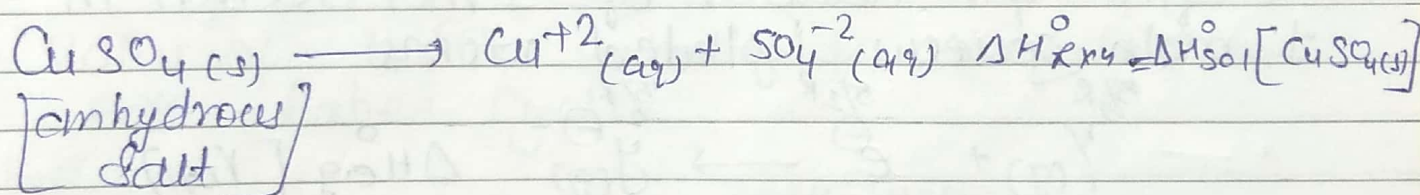 CuSO₄(s) ⟶ Cu⁺²(aq) + SO₄⁻²(aq) ΔH°Rxn = ΔH°Sol [CuSO₄(s)]
[anhydrous
Salt]